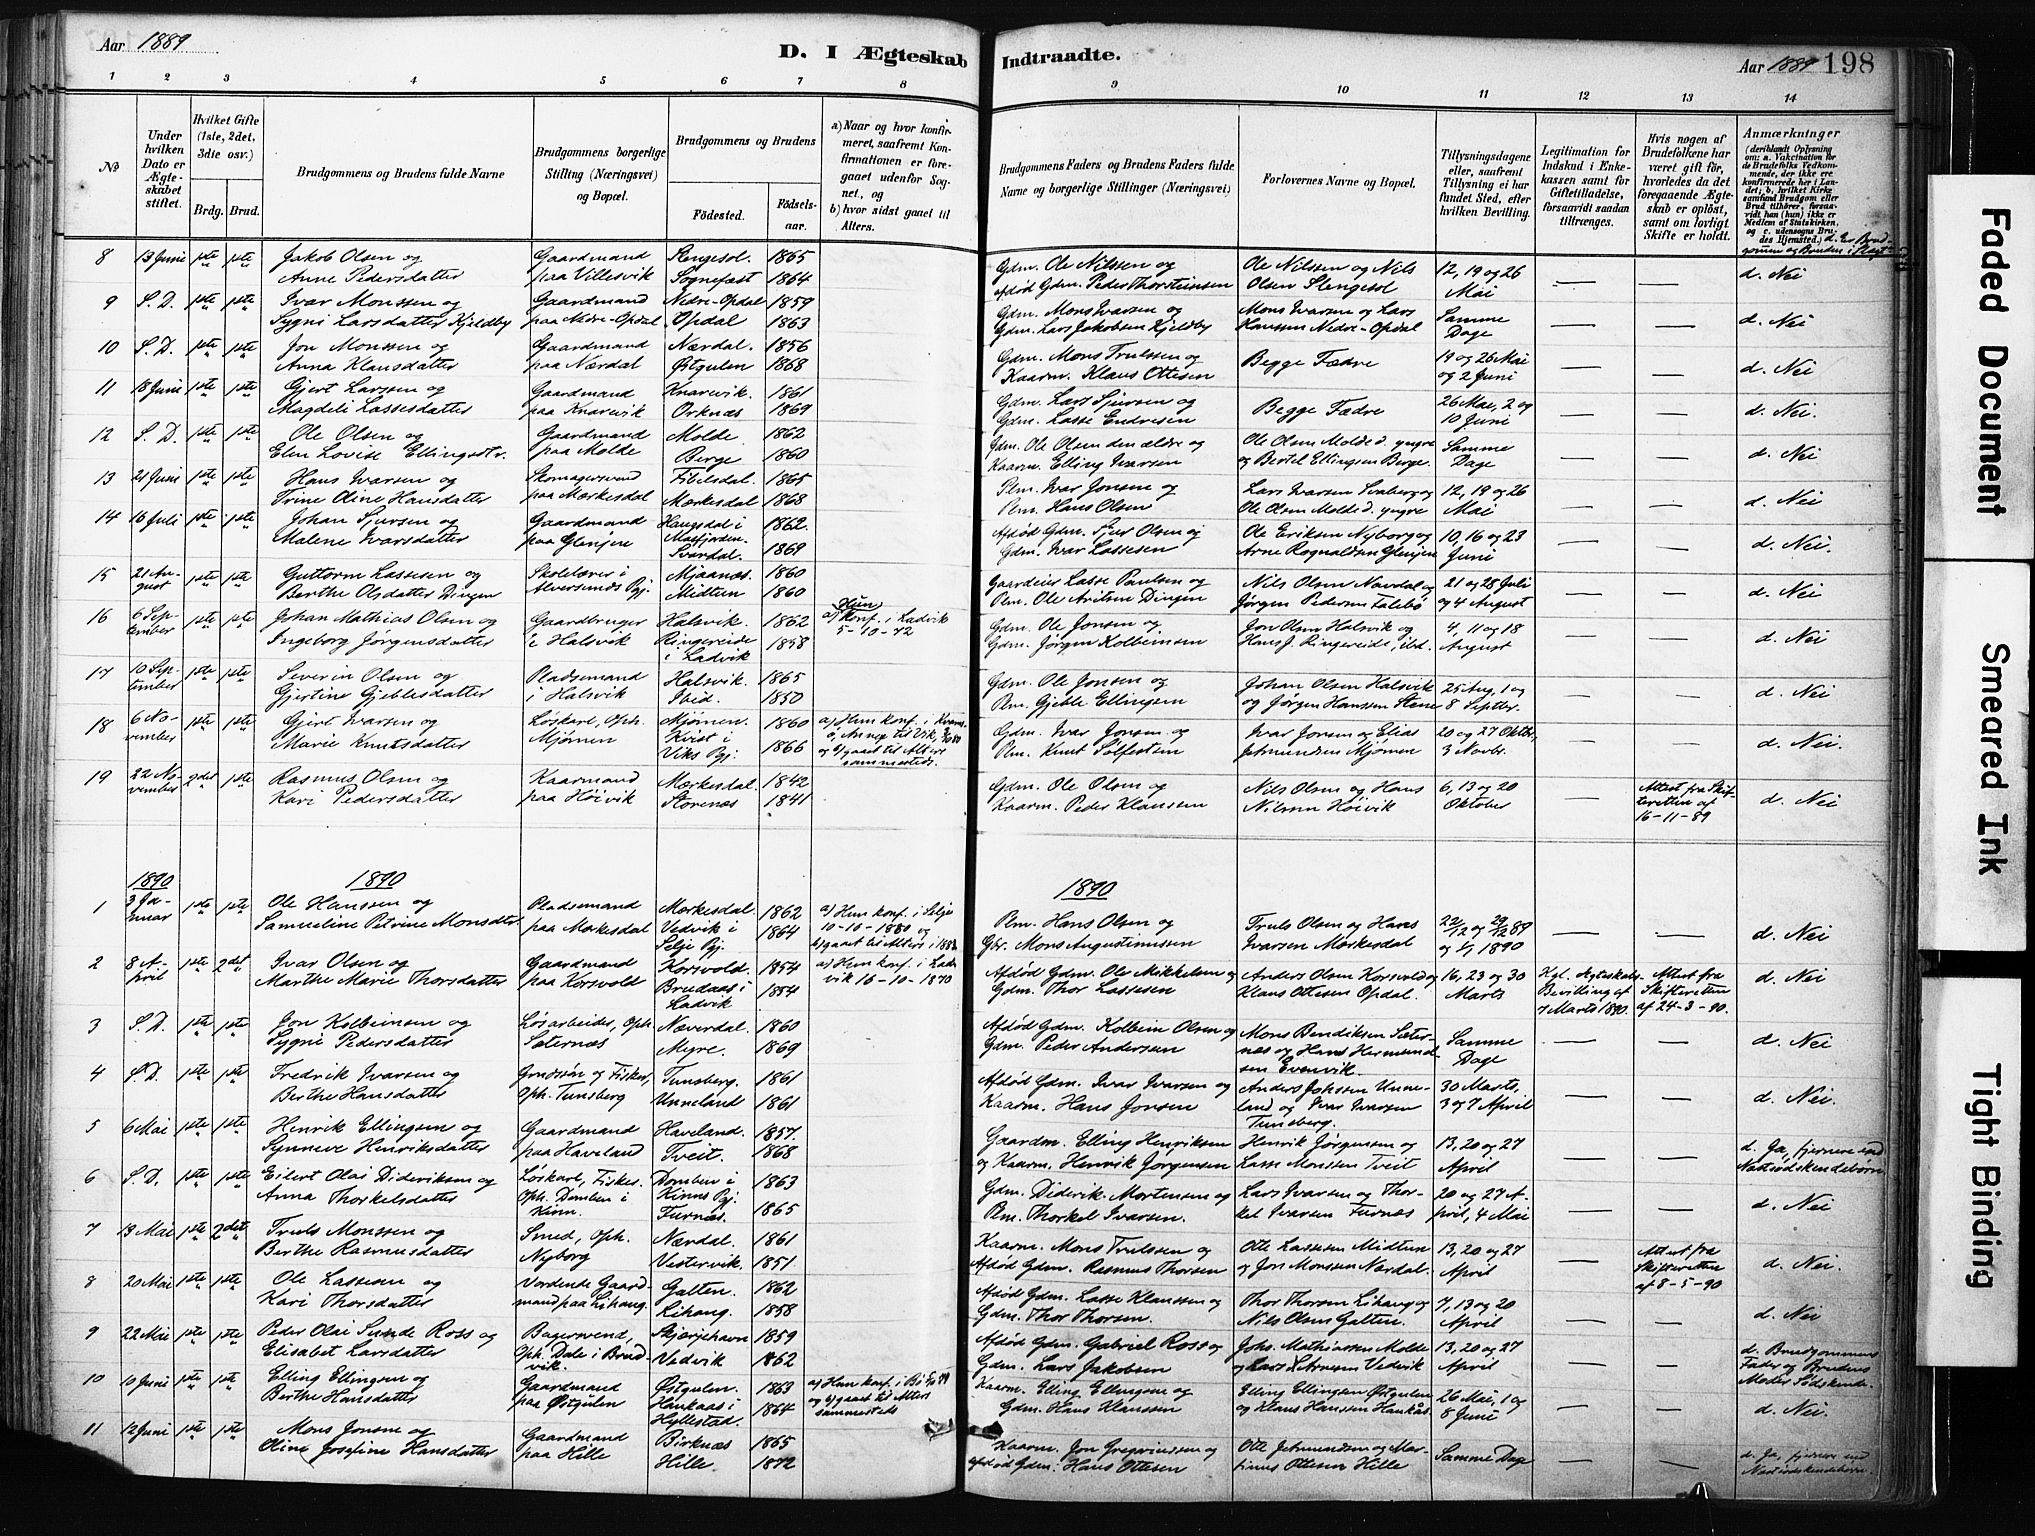 Aar 1889
D. I Ægteskab
1 2 3 4 5 6 7 8
№
Under hvilken Dato er Ægteskabet stiftet.
Hvilket Gifte (1ste, 2det, 3die osv.)
Brdg. Brud.
Brudgommens og Brudens fulde Navne
Brudgommens borgerlige Stilling (Næringsvei) og Bopæl.
Brudgommens og Brudens
Fødested.
Fødsels-aar.
a) Naar og hvor konfirmeret, saafremt Konfirmationen er foregaaet udenfor Sognet, og
b) hvor sidst gaaet til Alters.
8 13 Juni 1ste 1ste Jakob Olsen og Gaardmand Slengesol. 1865
Anne Pedersdatter paa Villesvik Sognefast 1864
9 S. D. 1ste 1ste Ivar Monssen og Gaardmand Nedre-Opdal 1859
Sygni Larsdatter Kjeldby paa Nedre-Opdal Opdal 1863
10 S. D. 1ste 1ste Jon Monssen og Gaardmand Nærdal. 1856
Anna Klausdatter paa Nærdal Østgulen 1868
11 18 Juni 1ste 1ste Gjert Larsen og Gaardmand Knarvik. 1861
Magdeli Lassesdatter paa Knarvik Orknæs 1869
12 S. D. 1ste 1ste Ole Olsen og Gaardmand Molde. 1862
Elen Lovise Ellingsdtr. paa Molde Berge 1860
13 21 Juni 1ste 1ste Hans Ivarsen og Skomagersvend 1865
Trine Oline Hansdatter paa Mærkesdal Mærkesdal 1868
14 16 Juli 1ste 1ste Johan Sjursen og Gaardmand Haugsdal i Masfjorden. 1862.
Malene Ivarsdatter paa Glenjene Svardal. 1869
15 21 August 1ste 1ste Guttorm Lassesen og Skolelærer i Mjaanæs. 1860
Berthe Olsdatter Dingen Alversunds Pgj. Midtun 1860
16 6 September 1ste 1ste Johan Mathias Olsen og Gaardbruger Halsvik. 1862 a) Hun konf. i Ladvik
Ingeborg Jørgensdatter i Halsvik Ringereide i Ladvik 1858 5-10-72
17 10 September 1ste 1ste Severin Olsen og Pladsemand Halsvik. 1865
Gjertine Gjeblesdatter i Halsvik Ibid. 1850
18 6 November 1ste 1ste Gjert Ivarsen og Løskarl, Oph. Mjømen. 1860 a) Hun konf. i
Marie Knutsdatter Mjømen Kvist i Viks Pgj. 1866 og b) gaaet til Alters sammesteds.
19 22 November 2det 1ste Rasmus Olsen og Kaarmand Mærkesdal. 1842
Kari Pedersdatter paa Høivik Storenæs 1841
1890 1890
1 3 Januar 1ste 1ste Ole Hanssen og Pladsemand Mærkesdal. 1862 a) Hun konf. i Selje
Samueline Petrine Monsdtr paa Mærkesdal Vedvik i Selje Pgj. 1864 10-10-1880 og b) gaaet til Alters i
2 8 April 1ste 2det Ivar Olsen og Gaardmand Korsvold. 1854 a) Hun konf. i Ladvik
Marthe Marie Thorsdatter paa Korsvold Brudaas i Ladvik 1854 16-10-1870
3 S. D. 1ste 1ste Jon Kolbeinsen og Løsarbeider, Oph. Næverdal. 1860
Sygni Pedersdatter Sæternæs Myre. 1869
4 S. D. 1ste 1ste Fredrik Ivarsen og Grndssøn og Fisker, Tunsberg. 1861
Berthe Hansdatter Oph. Tunsberg Unneland 1861
5 6 Mai 1ste 1ste Henrik Ellingsen og Gaardmand Haveland. 1857.
Synneve Henriksdatter paa Haveland Tveit. 1868
6 S. D. 1ste 1ste Eilert Olai Dideriksen og Løskarl, Fisker Domben i Kinns Pgj. 1863
Anna Thorkelsdatter Oph. Domben i Kinn. Furnæs. 1865
7 13 Mai 1ste 2det Truls Monssen og Smed, Oph. Nærdal. 1861
Berthe Rasmusdatter Nyborg Vestervik. 1851
8 20 Mai 1ste 1ste Ole Lassesen og Vordende Gaardmand Galten. 1862
Kari Thorsdatter paa Lihaug. Lihaug. 1858
9 22 Mai 1ste 1ste Peder Olai Sunde Ross og Bagersvend, Skjærjehavn 1859
Elisabet Larsdatter Oph. Dale i Brudvik. Vedvik 1862
10 10 Juni 1ste 1ste Elling Ellingsen og Gaardmand Østgulen. 1863 a) Hun konf. i Bø
Berthe Hansdatter paa Østgulen Haukaas i Hyllestad. 1864 og b) gaaet til Alters sammesteds
11 12 Juni 1ste 1ste Mons Jonsen og Gaardmand Birknæs 1865
Oline Josefine Hansdatter paa Hille Hille. 1872
Indtraadte.
Aar 1889 198
9 10 11 12 13 14
Brudgommens Faders og Brudens Faders fulde Navne og borgerlige Stillinger (Næringsvei)
Forlovernes Navne og Bopæl.
Tillysningsdagene eller, saafremt Tillysning ei har fundet Sted, efter hvilken Bevilling.
Legitimation for Indskud i Enkekassen samt for Giftetilladelse, forsaavidt saadan tiltrænges.
Hvis nogen af Brudefolkene har været gift før, hvorledes da det foregaaende Ægteskab er opløst, samt om lovligt Skifte er holdt.
Anmærkninger (deriblandt Oplysning om: a. Vakcination for de Brudefolks Vedkommende, der ikke ere konfirmerede her i Landet; b. hvilket Kirkesamfund Brudgom eller Brud tilhører, forsaavidt han (hun) ikke er Medlem af Statskirken, og c. udensogns Brudes Hjemsted.) d. Er Brudgommen og Bruden i Slægt
Gdm. Ole Nilssen og Ole Nilssen og Nils 12, 19 og 26 — — d. Nei
afdød Gdm. Peder Thorsteinsen Olsen Slengesol Mai
Gdm. Mons Ivarsen og Mons Ivarsen og Lars Samme — — d. Nei
Gdm. Lars Jakobsen Kjeldby Hanssen Nedre-Opdal Dage
Gdm. Mons Trulssen og Begge Fædre 19 og 26 Mai — — d. Nei
Kaarm. Klaus Ottesen og 2 Juni
Gdm. Lars Sjursen og Begge Fædre 26 Mai, 2 og — — d. Nei.
Gdm. Lasse Endresen 10 Juni
Gdm. Ole Olsen den ældre og Ole Olsen Molde d. yngre Samme — — d. Nei
Kaarm. Elling Ivarsen og Bertel Ellingsen Berge. Dage
Plm. Ivar Jonsen og Lars Ivarsen Svaberg og 12, 19 og 26 — — d. Nei
Plm. Hans Olsen Ole Olsen Molde d. yngre Mai
Afdød Gdm. Sjur Olsen og Ole Eriksen Nyborg og 10, 16 og 23 — — d. Nei.
Gdm. Ivar Lassesen Arne Rognaldsen Glenjen Juni
Gaardeier Lasse Paulsen og Nils Olsen Nävdal og 21 og 28 Juli — — d. Nei
Plm. Ole Dingen Jørgen Pedersen og 4 August
Gdm. Ole Jonsen og Jon Olsen Halsvik og 4, 11 og 18 — — d. Nei
Gdm. Jørgen Kolbeinsen Hans J. Ringereide, ibd. August
Gdm. Ole Jonsen og Johan Olsen Halsvik 25 Aug, 1 og — — d. Nei
Plm. Gjeble Ellingsen og Jørgen Hanssen Stene 8 Septbr.
Gdm. Ivar Jonsen og Ivar Jonsen og Elias 20 og 27 Oktbr, — — d. Nei.
Plm. Knut Sølfestsen Mjømen 3 Novbr.
Gdm. Ole Olsen og Nils Olsen og Hans 6, 13 og 20 — Attest fra Skifteretten af d. Nei
Kaarm. Peder Klaussen Nilssen Høivik Oktober 16-11-89
1890
Plm. Hans Olsen og Truls Olsen og Hans 22/12 og 29/12 89 — — d. Nei
Gbr. Mons Augustinussen Ivarsen Mærkesdal og 1/1 1890
Afdød Gdm. Ole Mikkelsen og Anders Olsen Korsvold og 16, 23 og 30 Kgl. Ægteskabs Bevilling af 7 Marts 1890. Attest fra Skifteretten af 24-3-90. d. Nei
Gdm. Thor Lassesen Klaus Ottesen Opdal. Marts
Afdød Gdm. Kolbein Olsen og Mons Bendiksen Sæternæs Samme — — d. Nei
Gdm. Peder Andersen og Hans Hermundsen Evenvik. Dage
Afdød Gdm. Ivar Ivarsen og Anders Johssen Unneland 30 Marts, — — d. Nei.
Kaarm. Hans Jonsen og Ivar Ivarsen Tunsberg. 3 og 7 April
Gaardm. Elling Henriksen Henrik Jørgensen og 13, 20 og 27 — — d. Ja, fjernere end
og Kaarm. Henrik Jørgensen Lasse Monssen Tveit April Næstsødskendebørn
Gdm. Diderik Mortensen og Lars Ivarsen og Thorkel 20 og 27 April, — — d. Nei
Plm. Thorkel Ivarsen. Ivarsen Furnæs 4 Mai
Kaarm. Mons Trulssen og Otte Lassesen Midtun 13, 20 og 27 — Attest fra Skifteretten af 8-5-90 d. Nei.
Afdød Gdm. Rasmus Thorsen og Jon Monssen Nærdal. April
Afdød Gdm. Lasse Klaussen og Thor Thorsen Lihaug og 7, 13 og 20 — — d. Nei
Gdm. Thor Thorsen. Nils Olsen Galten. April
Afdød Gdm. Gabriel Ross og Johs. Mathiassen Molde 13, 20 og 27 — — d. Brudgommens
Gdm. Lars Jakobsen og Lars Vedvik April Fader og Brudens Moder Sødskende.
Kaarm. Elling Ellingsen og Elling Ellingsen Østgulen 26 Mai, 1 og — — d. Nei.
Gdm. Hans Klaussen og Klaus Hanssen Haukås 8 Juni
Kaarm. Jon Gregoriussen og Otte og Martinus Samme Dage — — d. Ja, fjernere end
afdød Gdm. Hans Ottesen Ottesen Hille Næstsødskendebørn.
Faded Document
Smeared Ink
Tight Binding